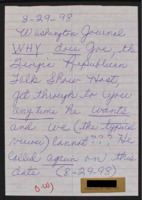 8-29-98
Washington Journal
WHY does Joe, the
Republican
Talk Show Host,
get through to your
anytime he wants
and we (the typical
viewer) cannot???? He
called again on this
date (8-29-98)